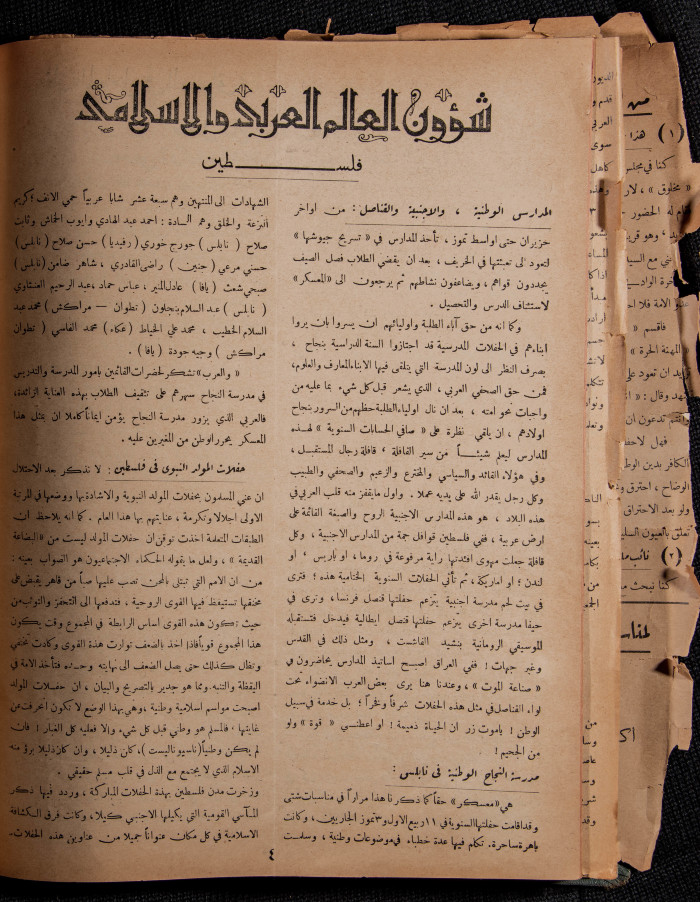 شؤون العالم العربي والاسلامي
فلسطين
المدارس الوطنية ، والاجنبية والقناصل : من اواخر
حزيران حتى اواسط تموز ، تأخذ المدارس في « تسريح جيوشها »
لتعود الى تعبئتها في الخريف ، بعد ان يقضي الطلاب فصل الصيف
يجددون قواهم ، ويضاعفون نشاطهم ثم يرجعون الى « المعسكر »
لاستئناف الدرس والتحصيل .
وكما انه من حق آباء الطلبة واوليائهم ان يسروا بان يروا
ابناءهم في الحفلات المدرسية قد اجتازوا السنة الدراسية بنجاح ،
بصرف النظر الى لون المدرسة التي يتلقى فيها الابناء المعارف والعلوم،
فمن حق الصحفي العربي ، الذي يشعر قبل كل شيء بما عليه من
واجبات نحو امته ، بعد ان نال اولياء الطلبة حظهم من السرور بنجاح
اولادهم ، ان يلقي نظرة على « صافي الحسابات السنوية » لهذه
المدارس ليعلم شيئــاً من سير القافلة ، قافلة رجال المستقبل ،
وفي هؤلاء القائد والسياسي والمخترع والزعيم والصحفي والطبيب
وكل رجل يقدر الله على يديه عملا . واول ما يقفز منه قلب العربي في
هذه البلاد ، هو هذه المدارس الاجنبية الروح والصبغة القائمة على
ارض عربية ، ففي فلسطين قوافل جمة من المدارس الاجنبية ، وكل
قافلة جعلت مهوى افئدتها راية مرفوعة في روما، او باريس ، او
لندن ؛ او اماريكة ، ثم تأتي الحفلات السنوية الختامية هذه ؛ فترى
في بيت لحم مدرسة اجنبية يتزعم حفلتها قنصل فرنسا، وترى في
حيفا مدرسة اخرى يتزعم حفلتها قنصل ايطالية فيدخل فتستقبله
الموسيقى الرومانية بنشيد الفاشست ، ومثل ذلك في القدس
وغير جهات ! ففي العراق اصبح اساتيذ المدارس يحاضرون في
« صناعة الموت » ، وعندنا هنا يرى بعض العرب الانضواء تحت
لواء القناصل في مثل هذه الحفلات شرفاً وفخراً ؛ بل خدمة في سبيل
الوطن ! ياموت زر ان الحياة ذميمة ! او اعطني « قوة » ولو
من الجحيم !
مدرسة النجاح الوطنية في نابلس :
هي « معسكر » حقاً كما ذكرنا هذا مراراً في مناسبات شتى
وقد اقامت حفلتها السنوية في ١١ ربيع الاول و٣ تموز الجاريين، وكانت
باهرة ساحرة. تكلم فيها عدة خطباء في موضوعات وطنية ، وسلمت
الشهادات الى المنتهين وهم سبعة عشر شابا عربياً حمي الانف ؛ كريم
النزعة والخلق وهم السادة : احمد عبد الهادي وايوب الخماش وثابت
صلاح ( نابلس ) جورج خوري ( رفيديا ) حسن صلاح ( نابلس )
حسني مرعي ( جنين ) راضي القادري ، شاهر ضامن ( نابلس )
صبحي شعث ( يافا ) عادل المنير ، عباس حماد ، عبد الرحيم
( نابلس ) عبد السلام بنجلون ( تطوان — مراكش ) محمد عبد
السلام الخطيب ، محمد علي الخياط ( عكاء ) محمد الفاسي ( تطوان
مراكش ) وجيه جودة ( يافا ) .
« والعرب » تشكر لحضرات القائمين بامور المدرسة والتدريس
في مدرسة النجاح سهرهم على تثقيف الطلاب بهذه العناية الزائدة،
فالعربي الذي يزور مدرسة النجاح يؤمن ايماناً كاملا ان بمثل هذا
المعسكر يحرر اوطان من المغيرين عليه .
حفلات المولد النبوي في فلسطين : لا نذكر بعد الاحتلال
ان عني المسلمون بحفلات المولد النبوية والاشادة بها ووضعها في المرتبة
الاولى اجلالا وتكرمة ، عنايتهم بها هذا العام . كما انه يلاحظ ان
الطبقات المتعلمة اخذت توقن ان حفلات المولد ليست من « البضاعة
القديمة » ، ولعل ما يقوله الحكماء الاجتماعيون هو الصواب بعينه :
من ان الامم التي تبتلى بالمحن تصب عليها صباً من قاهر يقبض على
مخنقها تستيقظ فيها القوى الروحية ، فتدفعها الى التحفز والتوثب من
حيث : تكون هذه القوى اساس الرابطة في المجموع وقت يكون
هذا المجموع قوياً فاذا اخذ بالضعف توارت هذه القوى وكادت تختفي
وتظل كذلك حتى يصل الضعف الى نهايته وحده فتأخذ الامة في
اليقظة والتنبه. ومما هو جدير بالتصريح والبيان ، ان حفلات المولد
اصبحت مواسم اسلامية وطنية ، وهي بهذا الوضع لا تكون انحرفت عن
غايتها ، فالمسلم هو وطني قبل كل شيء والا فعليه كل الغبار ! فان
لم يكن وطنياً ( ناسيوناليست )، كان ذليلا ، وان كان ذليلا برؤ منه
الاسلام الذي لا يجتمع مع الذل في قلب مسلم حقيقي .
وزخرت مدن فلسطين بهذه الحفلات المباركة ، وردد فيها ذكر
المـآسي القومية التي يكيلها الاجنبي كيلا ، وكانت فرق الكشافة
الاسلامية في كل مكان عنواناً جميلا من عناوين هذه الحفلات.
٤